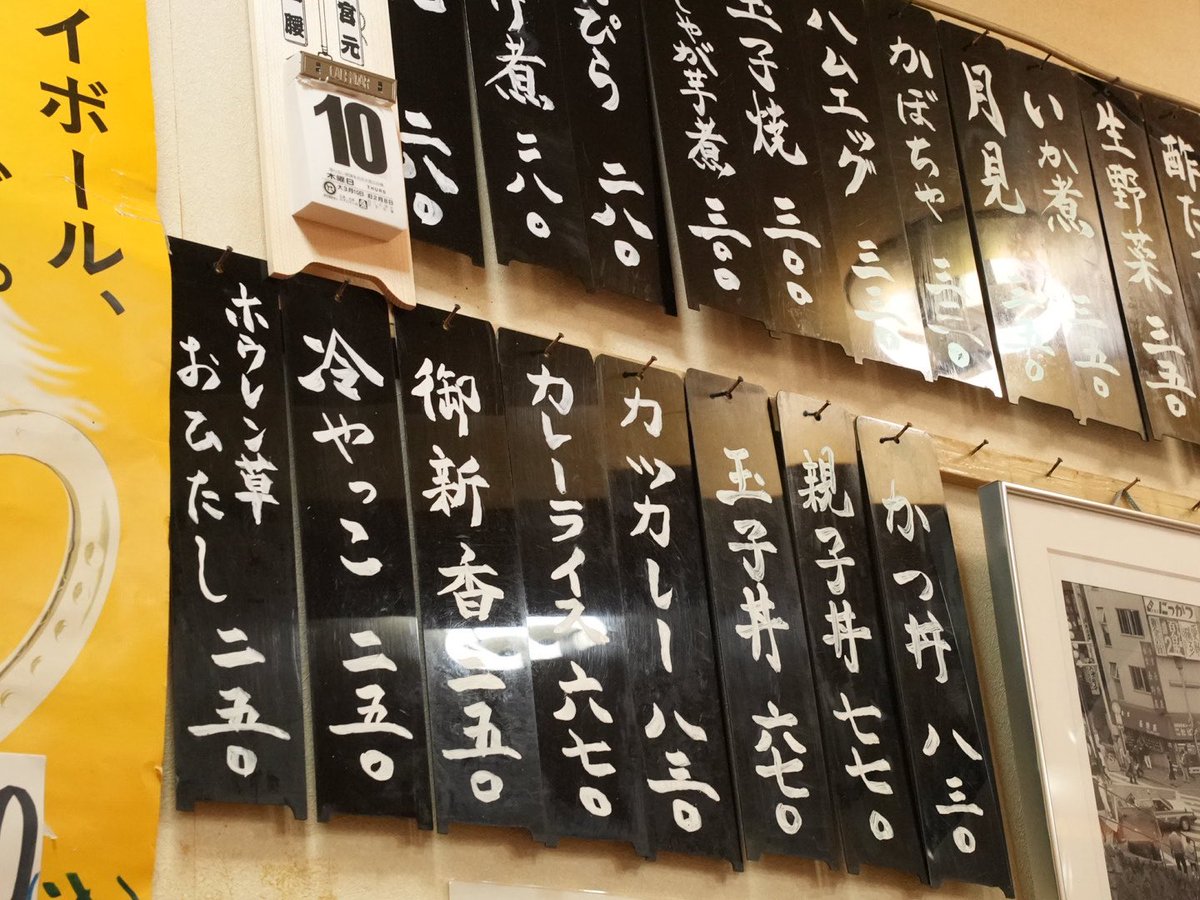 イボール、
宮元
腰
CALENDAR
10
木曜日
THURS
酢だ
生野菜 三五〇
いか煮 三五〇
月見
かぼちゃ 三三〇
ハムエッグ 三三〇
玉子焼 三〇〇
じゃが芋煮 三〇〇
ぴら 二八〇
煮 二八〇
二六〇
かつ丼 八三〇
親子丼 七七〇
玉子丼 六七〇
カツカレー 八三〇
カレーライス 六七〇
御新香 二五〇
冷やっこ 二五〇
ホウレン草
おひたし 二五〇
にっかつ